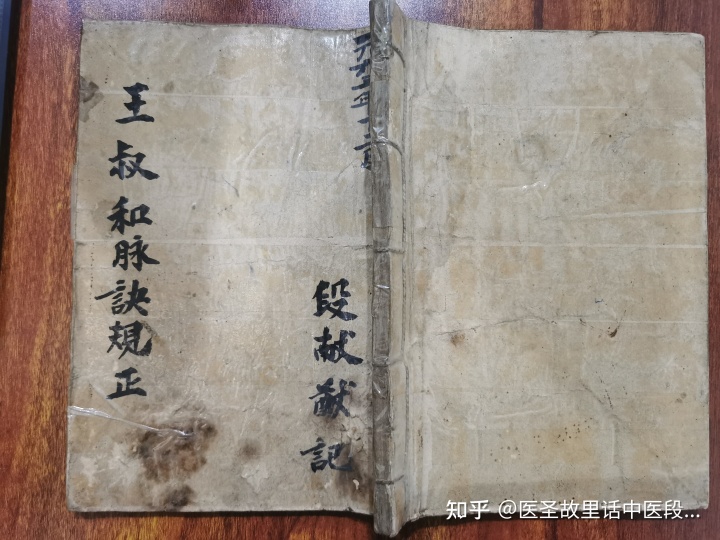 段献猷記
王叔和脉訣規正
知乎 @医圣故里话中医段...